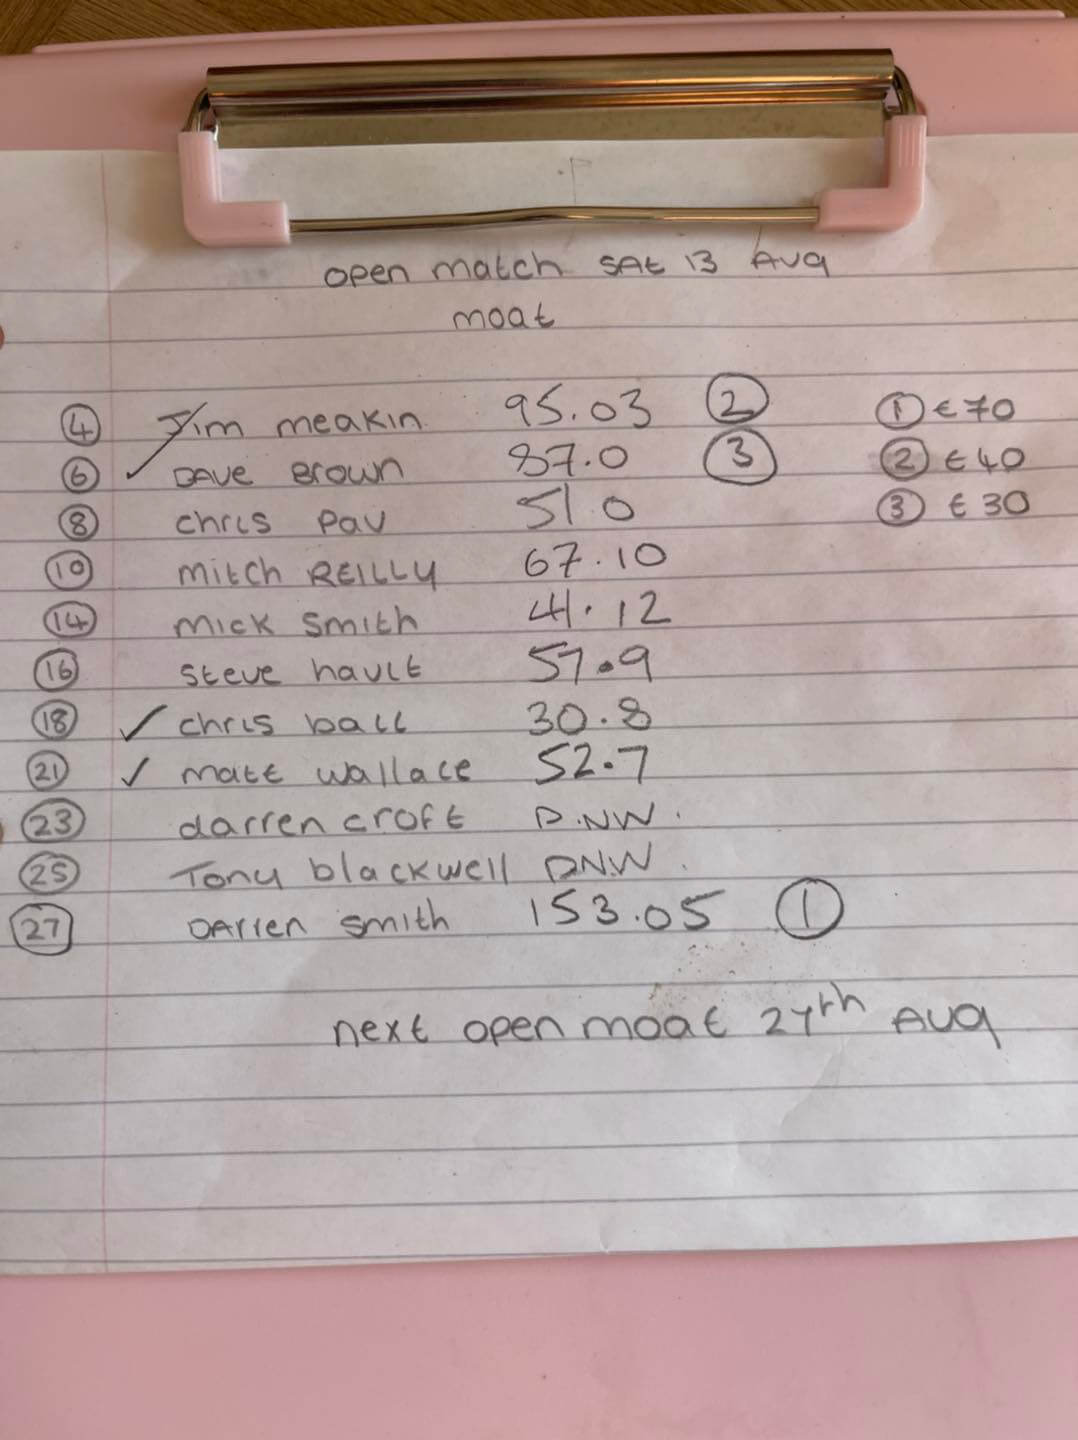 open match SAt 13 AUg
moat
4 Jim meakin 95.03 2 1 €70
6 ✓ DAVE Brown 87.0 3 2 €40
8 chris pav 51.0 3 €30
10 mitch REILLY 67.10
14 mick smith 41.12
16 steve hault 57.9
18 ✓ chris ball 30.8
21 ✓ matt wallace 52.7
23 darren croft D.NW.
25 Tony blackwell DN.W.
27 DArren smith 153.05 1
next open moat 27th AUg